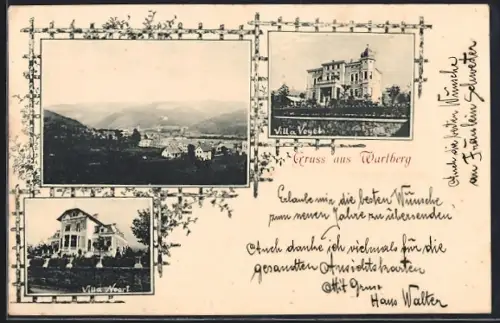 Villa Vogel
Gruss aus Wartberg
Erlaube mir die besten Wünsche
zum neuen Jahre zu übersenden
Auch danke ich vielmals für die
gesandten Ansichtskarten
Mit Gruss
Hans Walter
Auch die besten Wünsche
an Fräulein Schwester
Villa